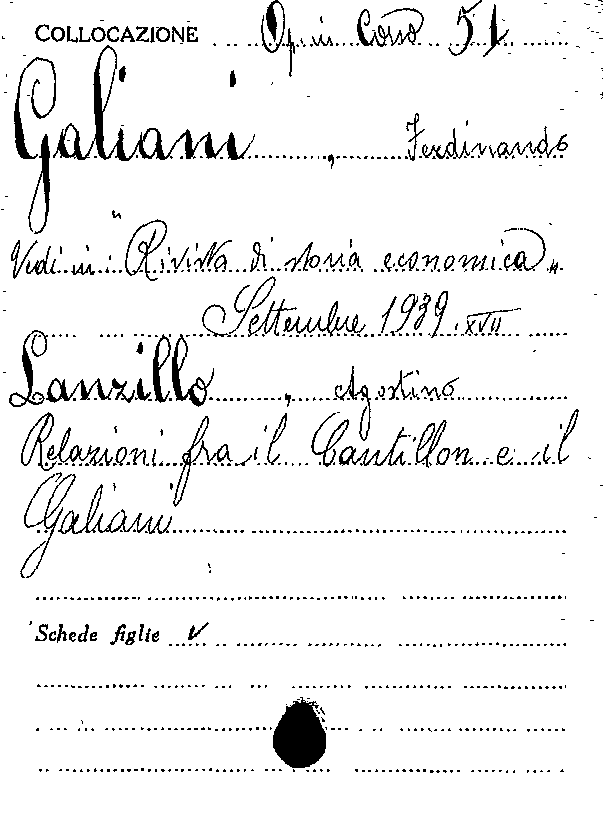 COLLOCAZIONE Op. in Corso 51
Galiani, Ferdinando
Vedi in: "Rivista di storia economica"
Settembre 1939.XVII
Lanzillo, Agostino
Relazioni fra il Cantillon e il
Galiani
Schede figlie